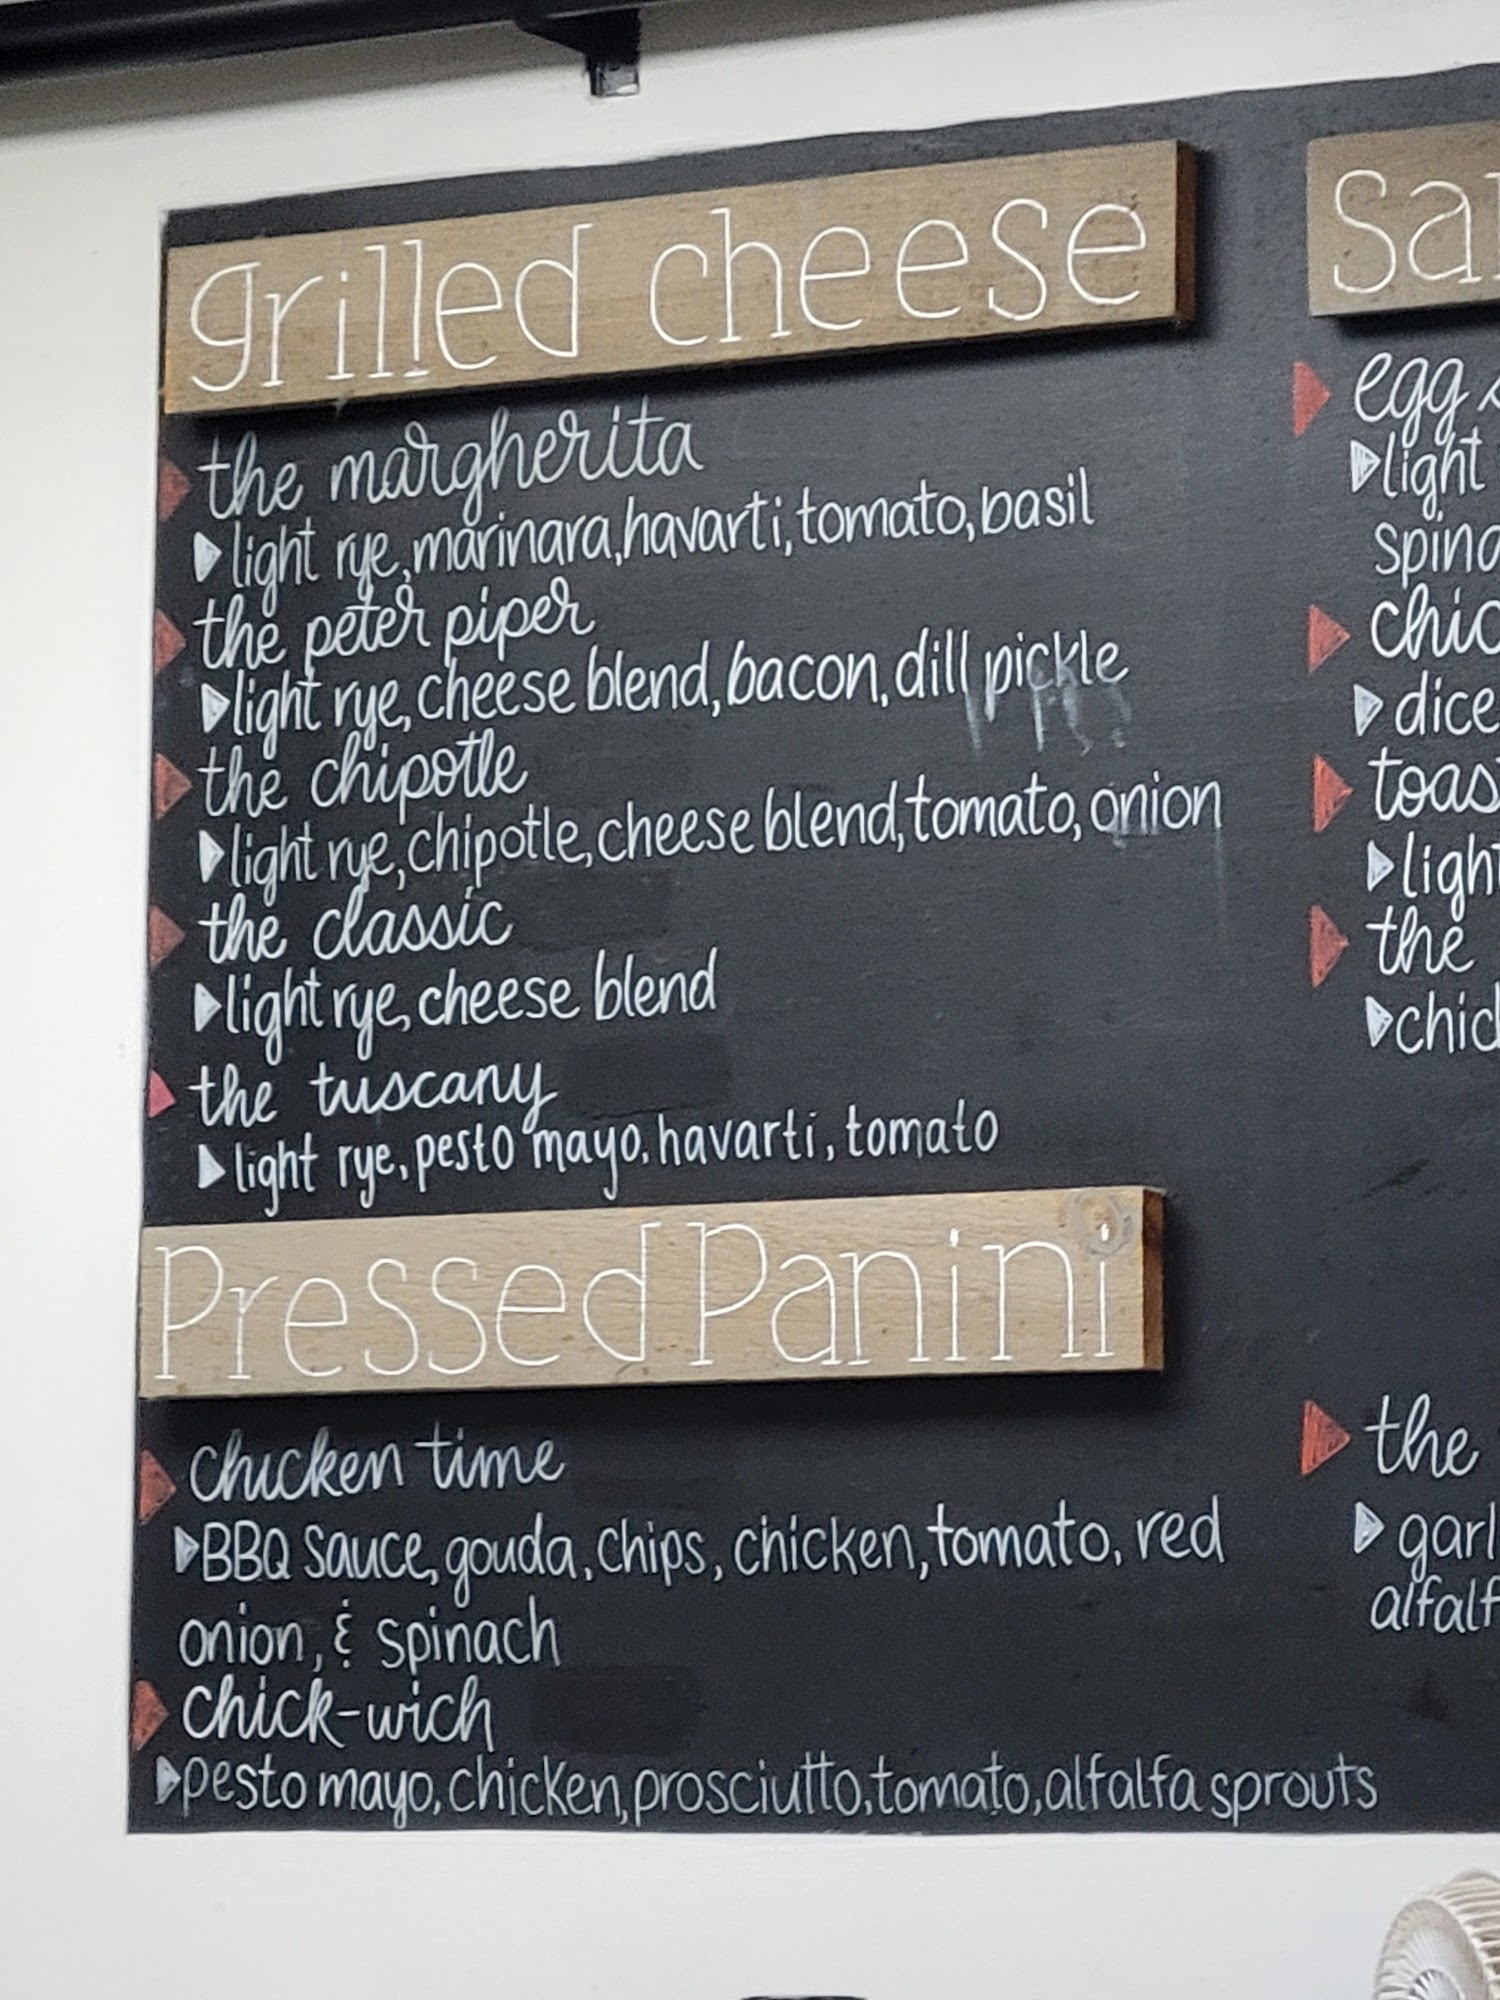 grilled cheese
the margherita
light rye, marinara, havarti, tomato, basil
the peter piper
light rye, cheese blend, bacon, dill pickle
the chipotle
light rye, chipotle, cheese blend, tomato, onion
the classic
light rye, cheese blend
the tuscany
light rye, pesto mayo, havarti, tomato
Pressed Panini
chicken time
BBQ sauce, gouda, chips, chicken, tomato, red
onion, & spinach
chick-wich
pesto mayo, chicken, prosciutto, tomato, alfalfa sprouts
egg
light
the
light
the